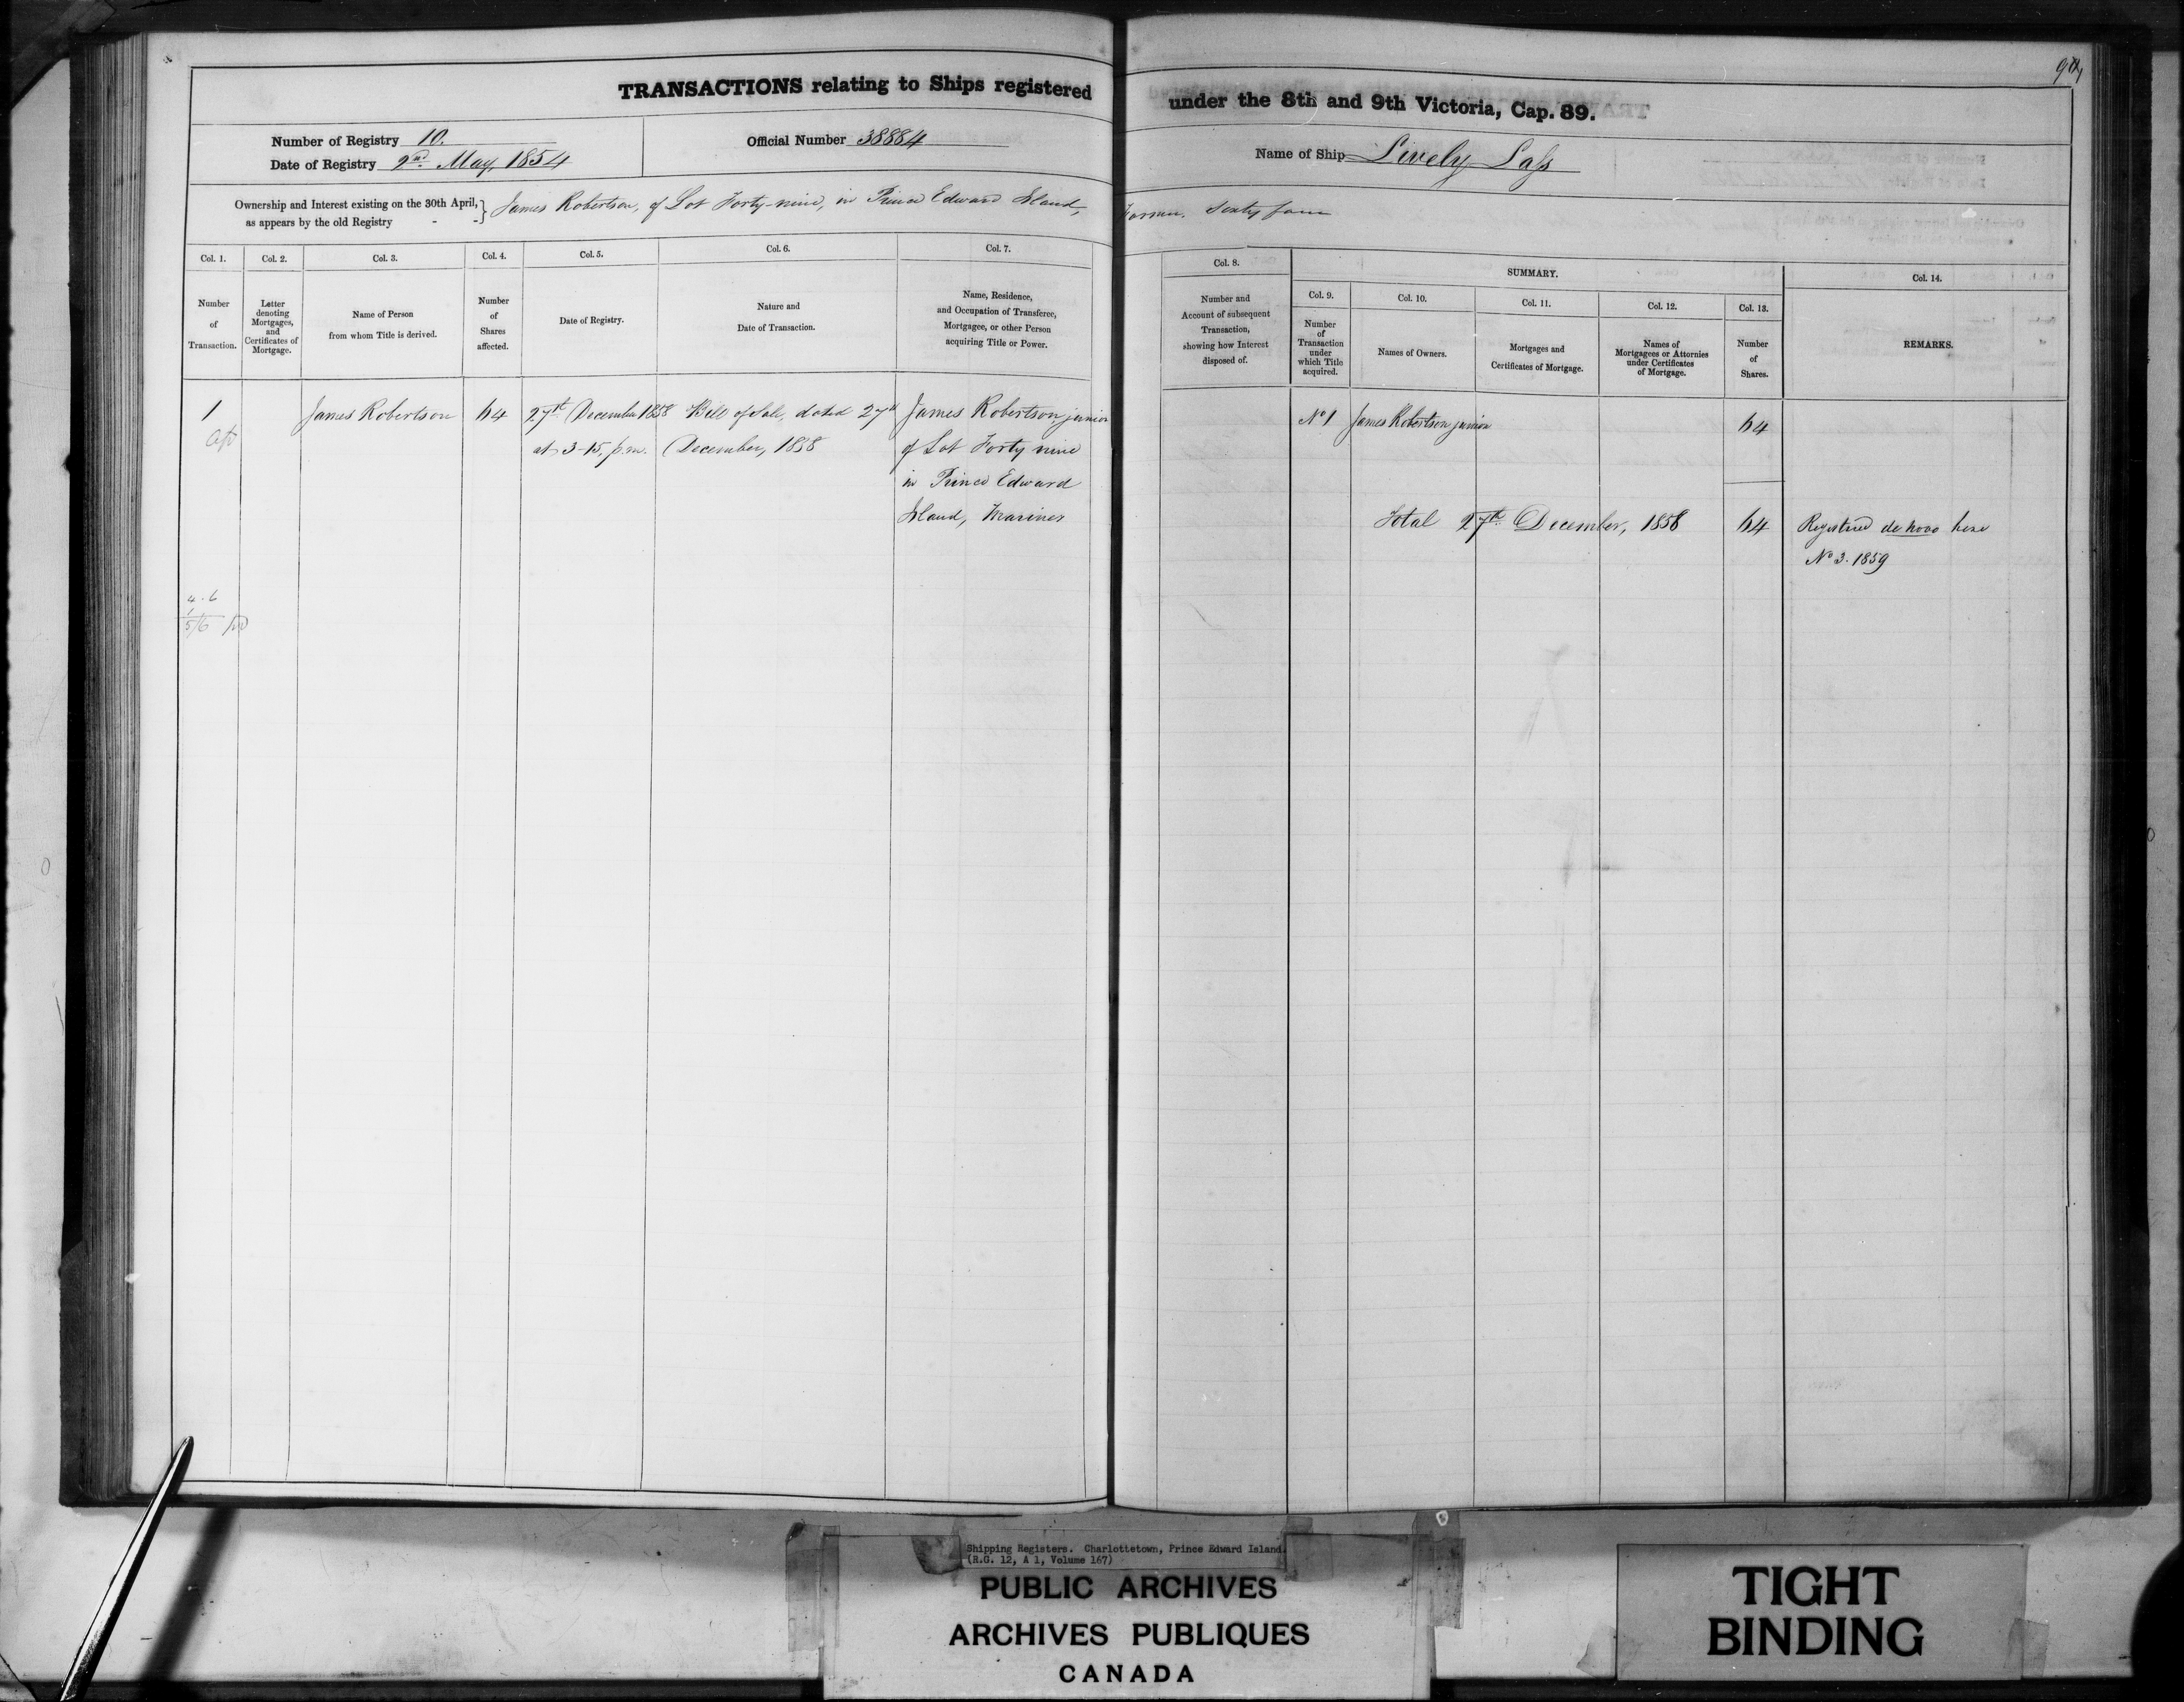 TRANSACTIONS relating to Ships registered under the 8th and 9th Victoria, Cap. 89.
Number of Registry 10.
Date of Registry 2nd May, 1854
Official Number 38884
Name of Ship Lively Lass
Ownership and Interest existing on the 30th April,
as appears by the old Registry - -
James Robertson, of Lot Forty-nine, in Prince Edward Island, Farmer. Sixty four
Col. 1.
Number
of
Transaction.
Col. 2.
Letter
denoting
Mortgages,
and
Certificates of
Mortgage.
Col. 3.
Name of Person
from whom Title is derived.
Col. 4.
Number
of
Shares
affected.
Col. 5.
Date of Registry.
Col. 6.
Nature and
Date of Transaction.
Col. 7.
Name, Residence,
and Occupation of Transferee,
Mortgagee, or other Person
acquiring Title or Power.
Col. 8.
Number and
Account of subsequent
Transaction,
showing how Interest
disposed of.
SUMMARY.
Col. 9.
Number
of
Transaction
under
which Title
acquired.
Col. 10.
Names of Owners.
Col. 11.
Mortgages and
Certificates of Mortgage.
Col. 12.
Names of
Mortgagees or Attornies
under Certificates
of Mortgage.
Col. 13.
Number
of
Shares.
Col. 14.
REMARKS.
1
James Robertson
64
27th December 1858
at 3-15, p.m.
Bill of Sale, dated 27th
December, 1858
James Robertson junior
of Lot Forty nine
in Prince Edward
Island, Mariner
No 1
James Robertson junior
64
Total 27th December, 1858 64
Registered de novo here
No 3. 1859
4.6
1
5/6
Shipping Registers. Charlottetown, Prince Edward Island.
(R.G. 12, A 1, Volume 167)
PUBLIC ARCHIVES
ARCHIVES PUBLIQUES
CANADA
TIGHT
BINDING